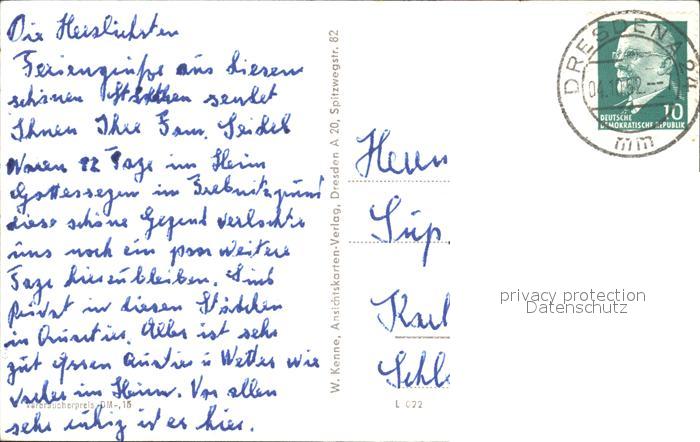 Die Herzlichsten
Feriengrüße aus diesem
schönen Städtchen sendet
Ihnen Ihre Fam. Seidel
Waren 12 Tage im Heim
Gottessegen in
diese schöne Gegend verlockte
uns noch ein paar weitere
Tage hierzubleiben. Sind
privat in diesem Städtchen
in Quartier. Alles ist sehr
gut Essen Quartier u Wetter wie
vorher im Heim. Vor allem
sehr ruhig ist es hier.
Verbraucherpreis DM -,15
W. Kenne, Ansichtskarten-Verlag, Dresden A 20, Spitzwegstr. 82
DRESDEN A 24
04.10.62
mm
10
DEUTSCHE
DEMOKRATISCHE REPUBLIK
Herrn
Sup
Karl
Schl
privacy protection
Datenschutz
L 022